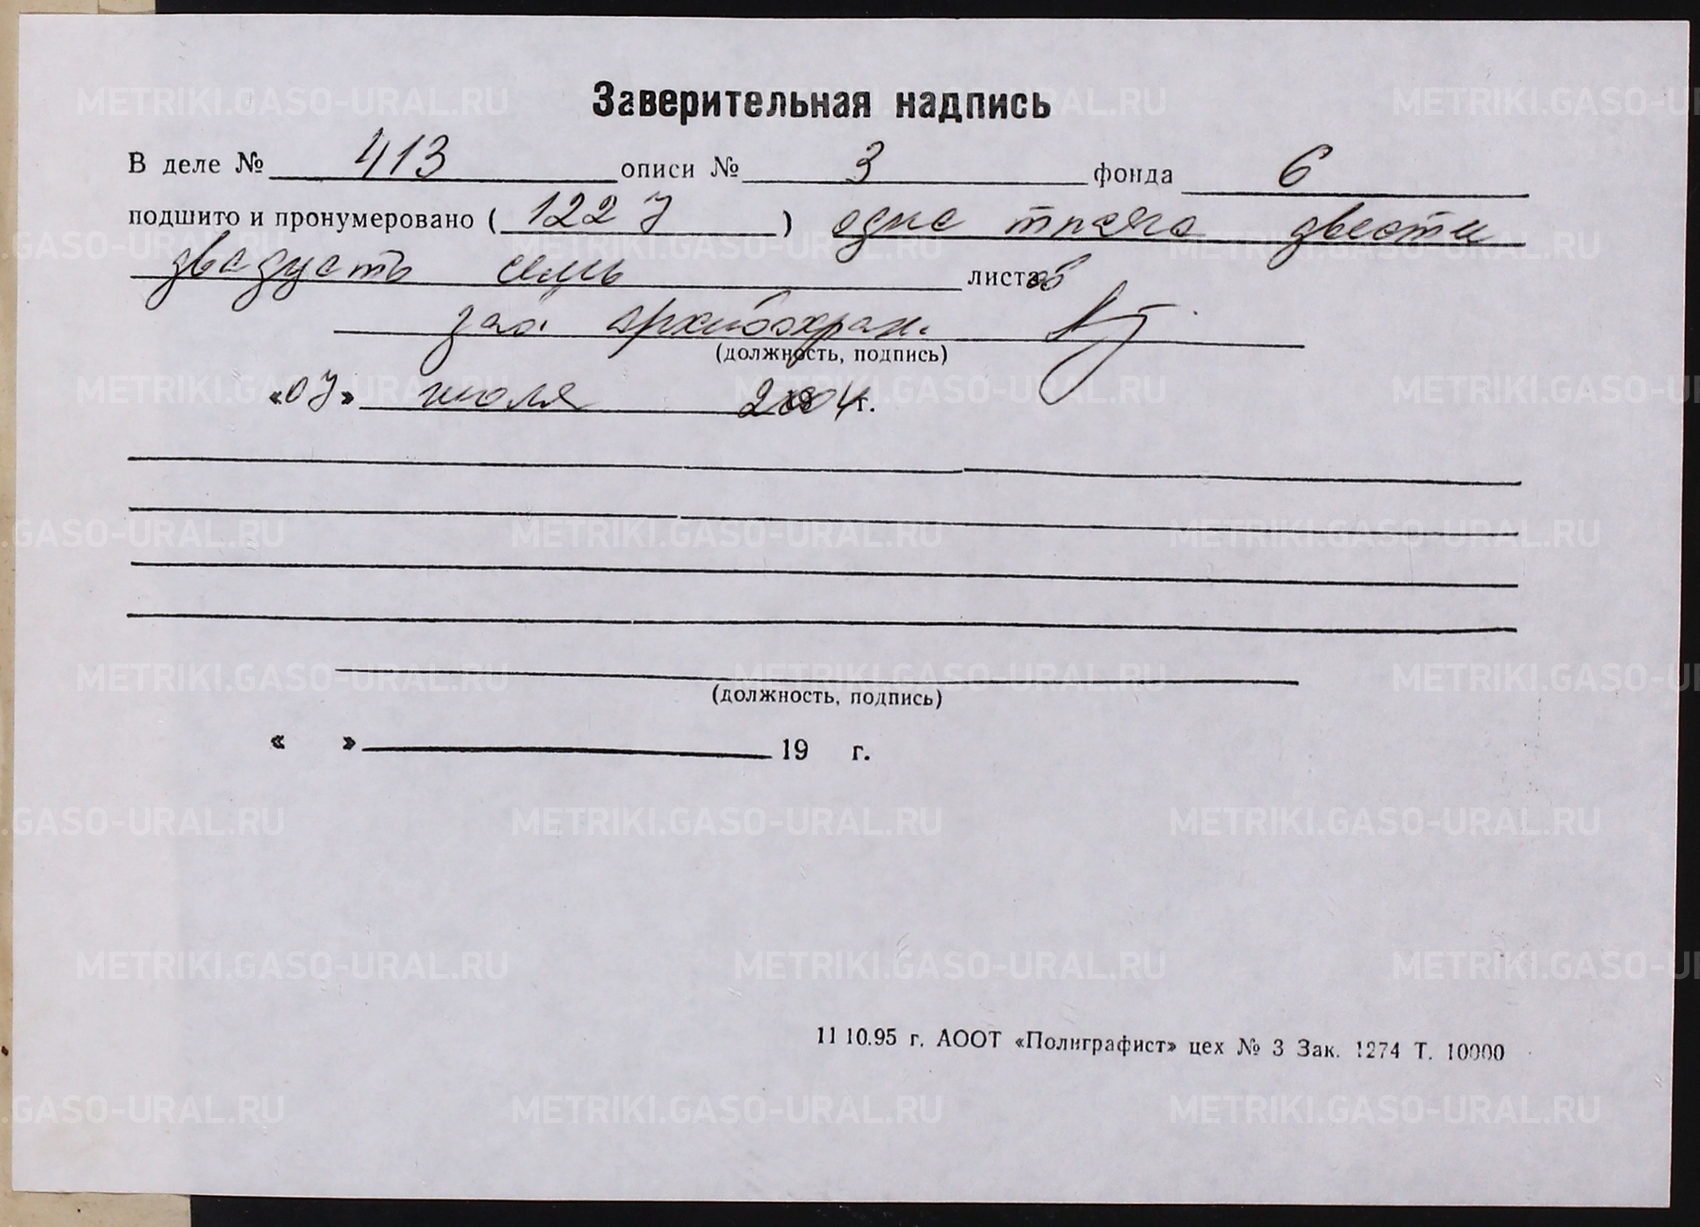 Заверительная надпись
В деле № 413 описи № 3 фонда 6
подшито и пронумеровано ( 1227 ) одна тысяча двести
двадцать семь листов
зав. архивохран.
(должность, подпись)
«07» июля 2004 г.
(должность, подпись)
« » 19 г.
11 10.95 г. АООТ «Полиграфист» цех № 3 Зак. 1274 Т. 10000
METRIKI.GASO-URAL.RU